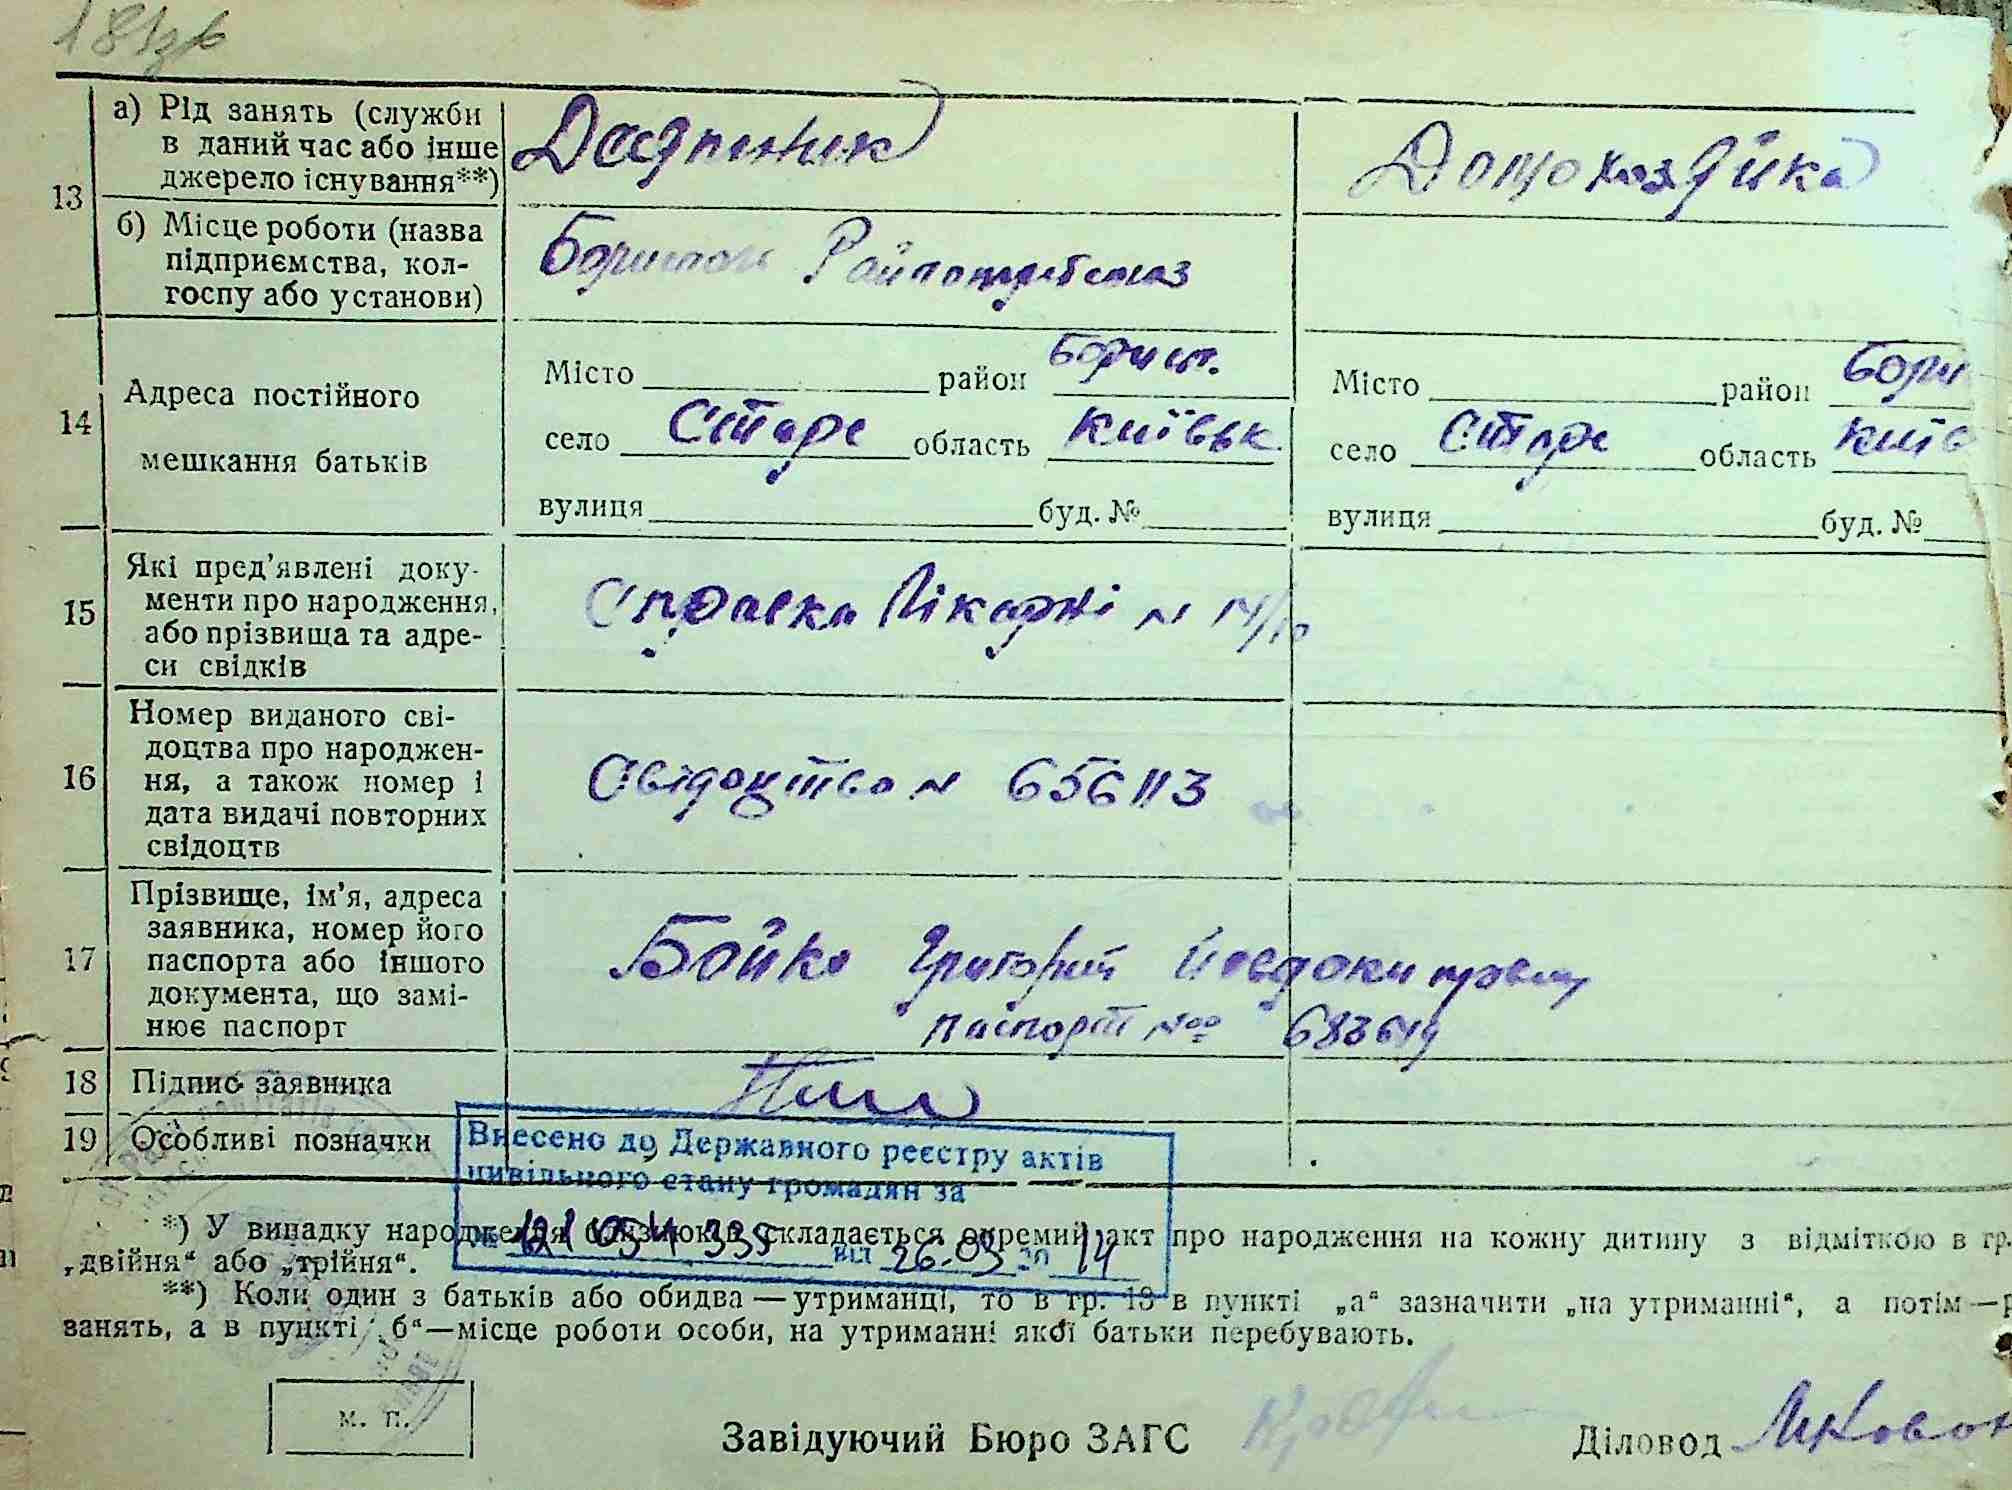 13
а) Рід занять (служби
в даний час або інше
джерело існування**)
Домохазяйка
б) Місце роботи (назва
підприємства, кол-
госпу або установи)
Райпотребсоюз
14
Адреса постійного
мешкання батьків
Місто район Борисп.
село Старе область Київськ
вулиця буд. №
Місто район Бори
село Старе область Київ
вулиця буд. №
15
Які пред’явлені доку-
менти про народження,
або прізвища та адре-
си свідків
Справка Лікарні N
16
Номер виданого сві-
доцтва про народжен-
ня, а також номер і
дата видачі повторних
свідоцтв
Свідоцтво N 656113
17
Прізвище, ім’я, адреса
заявника, номер його
паспорта або іншого
документа, що замі-
нює паспорт
Бойко Григорій Йовдокимович
паспорт № 683619
18 Підпис заявника
19 Особливі позначки
Внесено до Державного реєстру актів
цивільного стану громадян за
№ від 26.03 20 14
*) У випадку народження близнюків складається окремий акт про народження на кожну дитину з відміткою в гр.
„двійня“ або „трійня“.
**) Коли один з батьків або обидва — утриманці, то в гр. 13 в пункті „а“ зазначити „на утриманні“, а потім —
занять, а в пункті „б“—місце роботи особи, на утриманні якої батьки перебувають.
м. п.
Завідуючий Бюро ЗАГС
Діловод